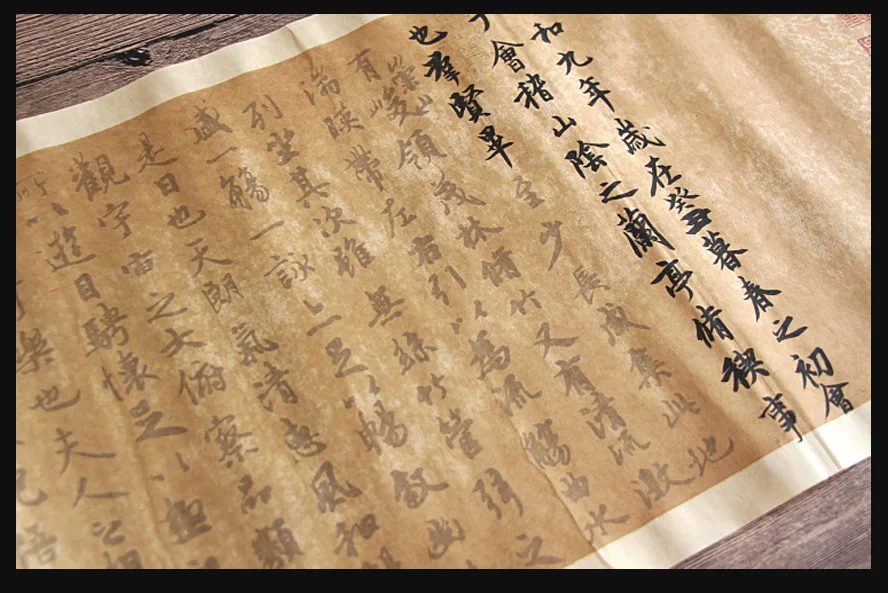 和九年歲在癸丑暮春之初會
會稽山陰之蘭亭脩禊事
也羣賢畢至少長咸集此地
有崇山峻領茂林脩竹又有清流激
湍暎帶左右引以為流觴曲水
列坐其次雖無絲竹管弦之
盛一觴一詠亦足以暢敘幽
是日也天朗氣清惠風和
觀宇宙之大俯察品類
所以遊目騁懷足以極
樂也夫人之相
悟